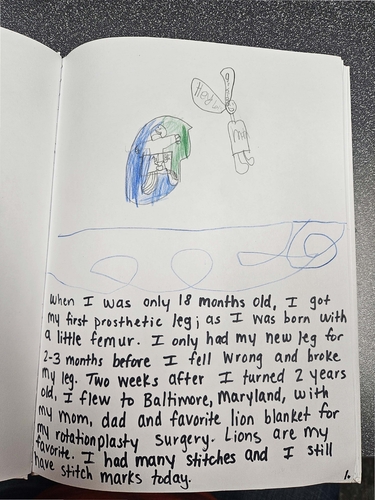 me
When I was only 18 months old, I got
my first prosthetic leg; as I was born with
a little femur. I only had my new leg for
2-3 months before I fell wrong and broke
my leg. Two weeks after I turned 2 years
old, I flew to Baltimore, Maryland, with
my mom, dad and favorite lion blanket for
my rotationplasty surgery. Lions are my
favorite. I had many stitches and I still
have stitch marks today.
1.